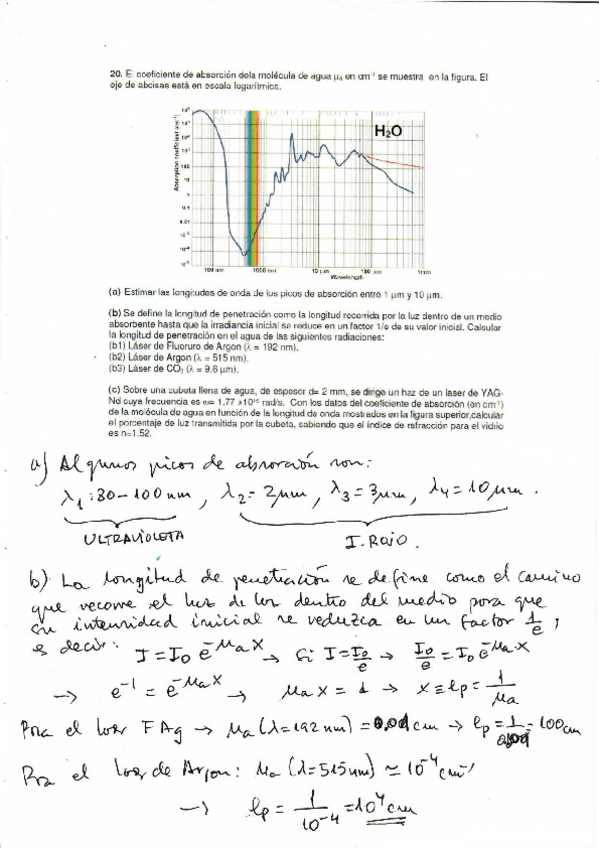 20. El coeficiente de absorción dela molécula de agua μₐ en cm⁻¹ se muestra en la figura. El
eje de abcisas está en escala logarítmica.
H₂O
Absorption coefficient (cm⁻¹)
100 nm 1000 nm 10 μm 100 μm 1mm
Wavelength
(a) Estimar las longitudes de onda de los picos de absorción entre 1 μm y 10 μm.
(b) Se define la longitud de penetración como la longitud recorrida por la luz dentro de un medio
absorbente hasta que la irradiancia inicial se reduce en un factor 1/e de su valor inicial. Calcular
la longitud de penetración en el agua de las siguientes radiaciones:
(b1) Láser de Fluoruro de Argon (λ = 192 nm).
(b2) Láser de Argon (λ = 515 nm).
(b3) Láser de CO₂ (λ = 9.6 μm).
(c) Sobre una cubeta llena de agua, de espesor d= 2 mm, se dirige un haz de un laser de YAG-
Nd cuya frecuencia es ω= 1.77 x10¹⁵ rad/s. Con los datos del coeficiente de absorción (en cm⁻¹)
de la molécula de agua en función de la longitud de onda mostrados en la figura superior,calcular
el porcentaje de luz transmitida por la cubeta, sabiendo que el índice de refracción para el vidrio
es n=1.52.
a) Algunos picos de absorción son:
λ₁: 80-100 nm, λ₂= 2μm, λ₃= 3μm, λ₄= 10μm.
ULTRAVIOLETA I. ROJO.
b) La longitud de penetración se define como el camino
que recorre el haz de luz dentro del medio para que
su intensidad inicial se reduzca en un factor 1/e,
es decir: I = I₀ e^(-μₐx) → Si I = I₀/e → I₀/e = I₀ e^(-μₐ·x)
→ e⁻¹ = e^(-μₐx) → μₐx = 1 → x ≡ lp = 1/μₐ
Para el láser FAg → μₐ(λ=192 nm) = 0,01 cm → lp = 1/0,01 = 100 cm
Para el láser de Argon: μₐ(λ=515nm) ≃ 10⁻⁴ cm⁻¹
→ lp = 1/10⁻⁴ = 10⁴ cm